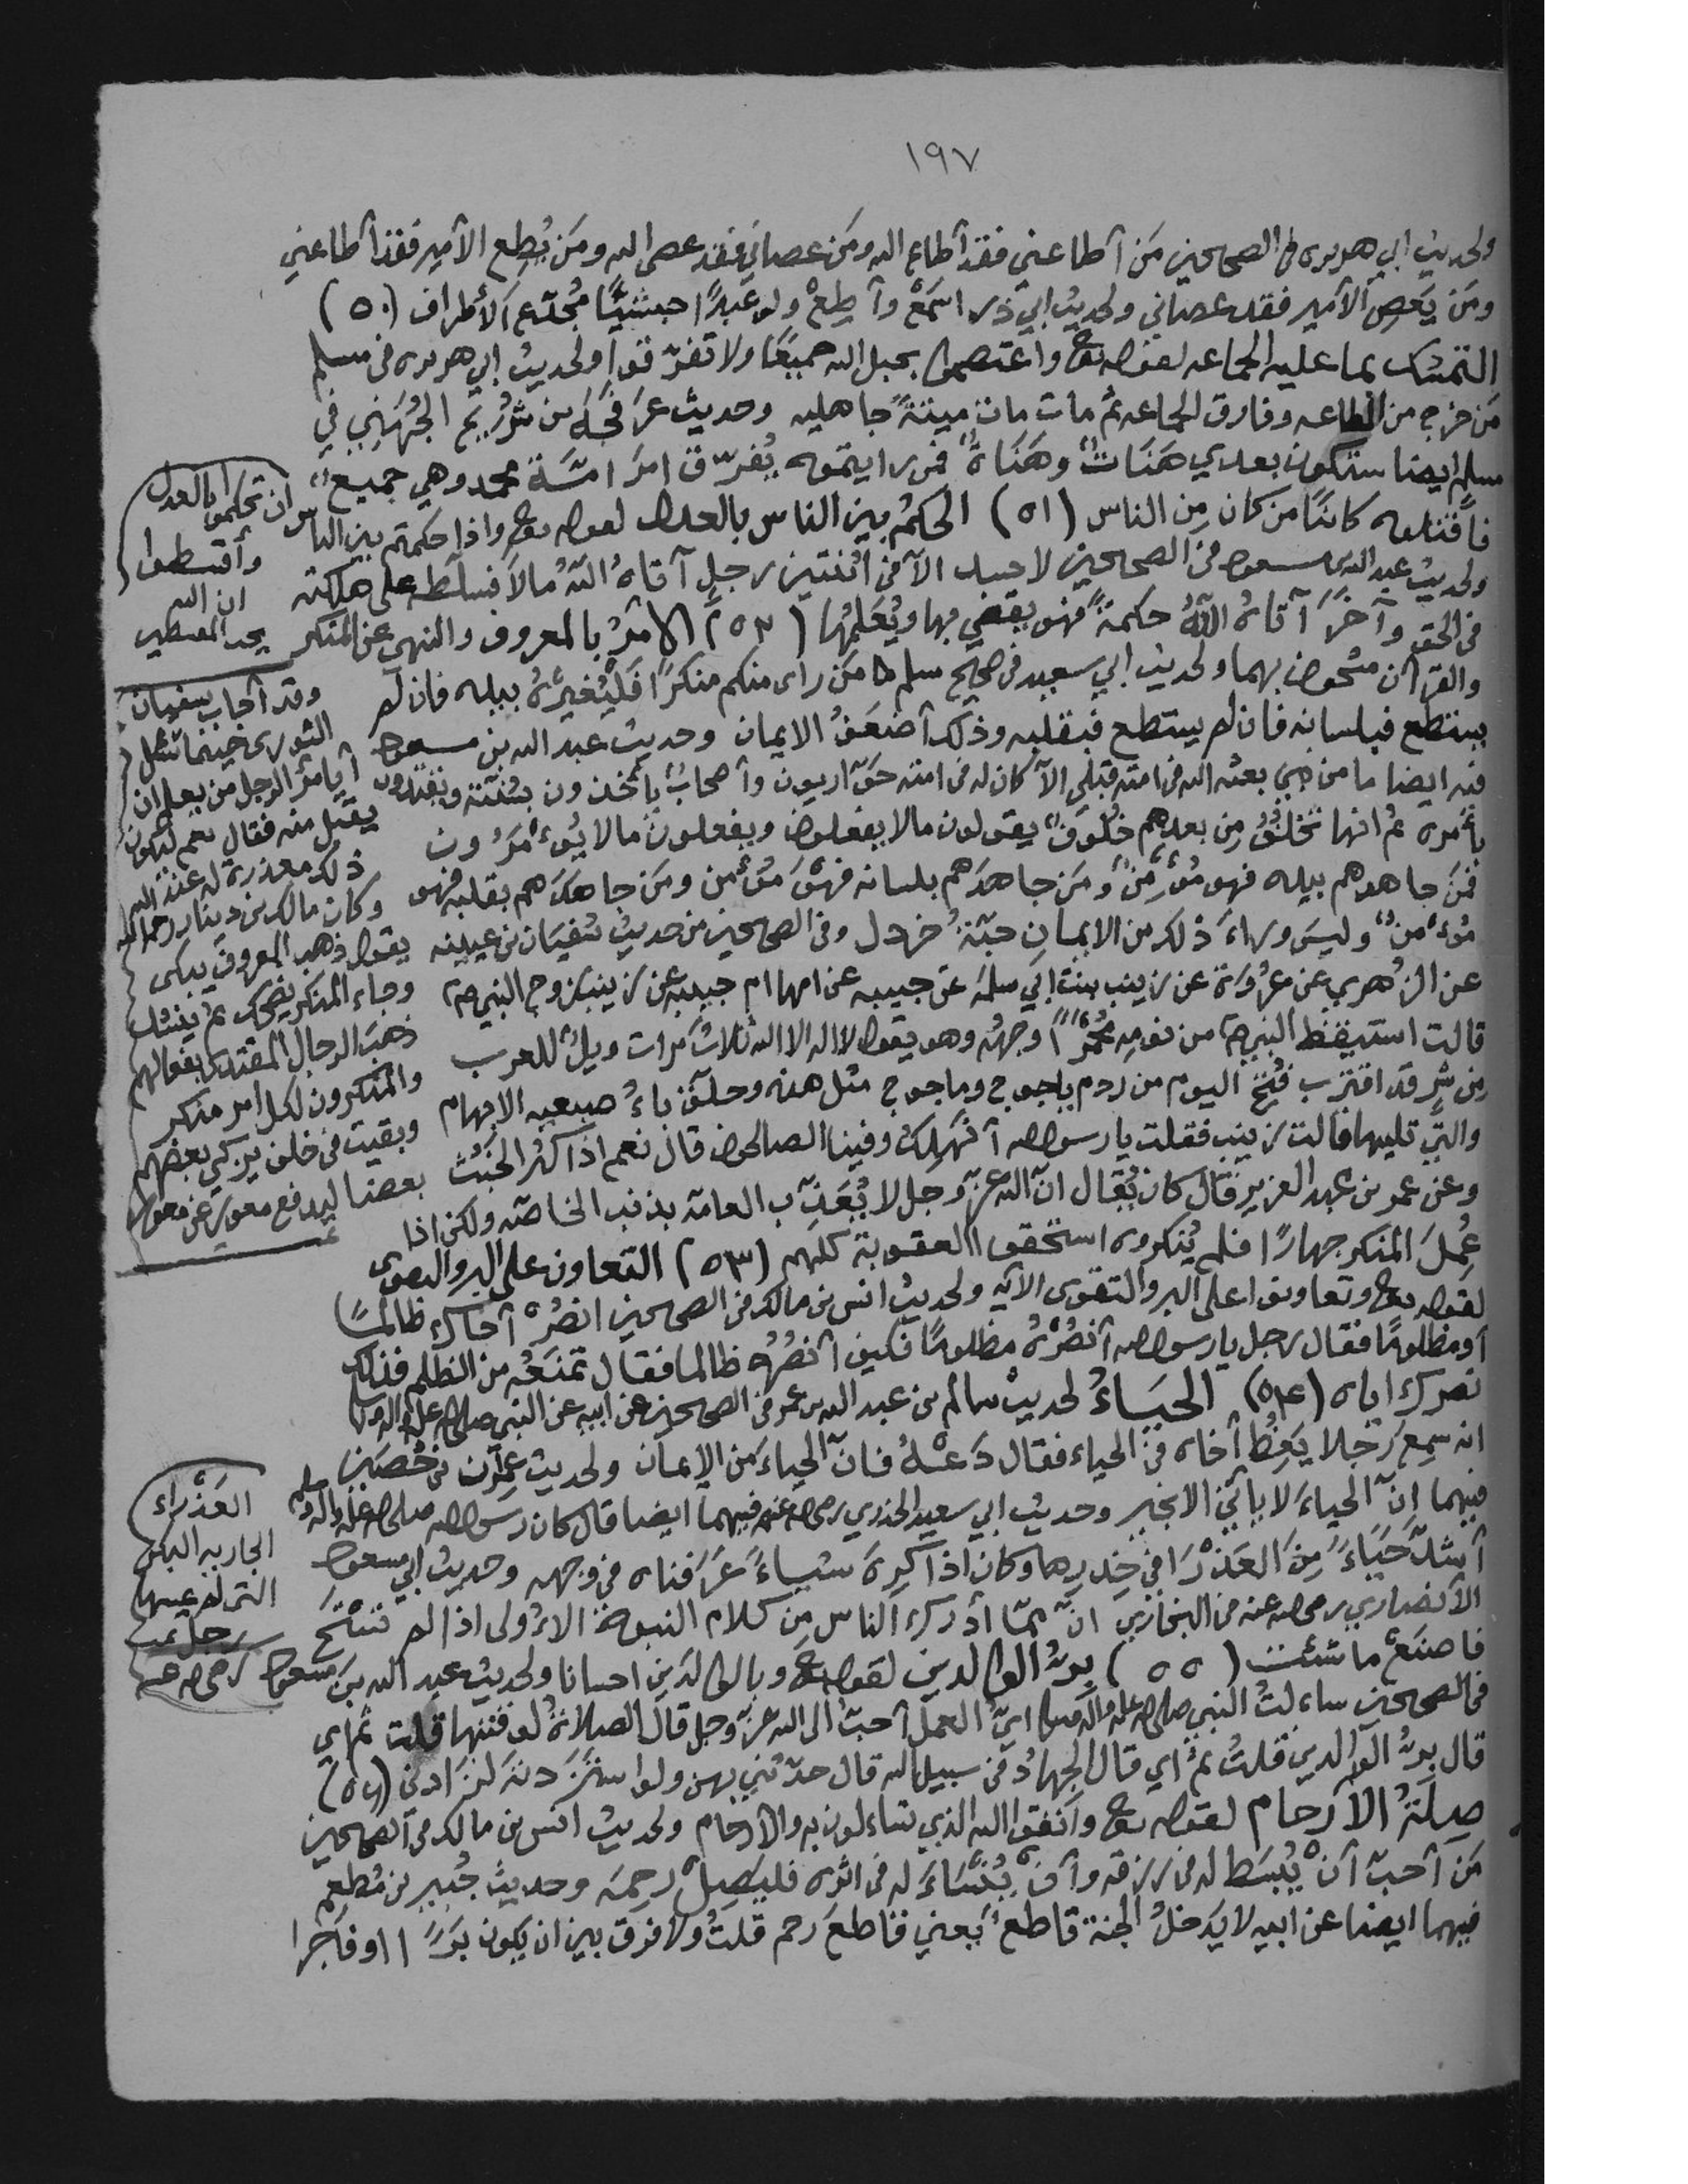 ١٩٧
ولحديث ابي هريره في الصحيحين مَن أطاعني فقد أطاع الله ومَن عصاني فقد عصى الله ومَن يُطِع الأمير فقد أطاعني
ومَن يَعصِ الأمير فقد عصاني ولحديث ابي ذر اسمَعْ وأطِعْ ولو عَبدًا حبشيًّا مُجدّع الأطراف (٥٠)
التمسّك بما عليه الجماعه لقوله تع واعتصموا بحبل الله جميعًا ولا تفرّقوا ولحديث ابي هريره في مسلم
مَن خرج من الطاعه وفارق الجماعه ثم مات مات ميتةً جاهليه وحديث عَرفَجَه بن شُرَيح الجُهَني في
مسلم ايضا ستكون بعدي هَنَات وهَنَاة فمن رايتموه يُفرّق امرَ امّة محمد وهي جميع
فاقتلوه كائنًا من كان مِن الناس (٥١) الحكمُ بين الناس بالعدل لقوله تع واذا حكمتم بين الناس ان تحكموا بالعدل
ولحديث عبد الله بن مسعود في الصحيحين لا حسد الاّ في اثنتين رجل آتاهُ اللهُ مالاً فسلّطه على هلكته
في الحق وآخرَ آتاهُ اللهُ حكمةً فهو يقضي بها ويُعَلِّمُها (٥٢) الامرُ بالمعروف والنهي عن المنكر
والقرآن مشحون بهما ولحديث ابي سعيد في صحيح مسلم مَن راى منكم منكرًا فليُغيِّرْهُ بيده فان لم
يستطع فبلسانه فان لم يستطع فبقلبه وذلك أضعَفُ الايمان وحديث عبد الله بن مسعود
فيه ايضا ما من نبي بعثه الله في امته قبلي الاّ كان له في امته حَوّاريون وأصحابٌ يأخذون بسُنّته ويقتدون
بأمره ثم انها تَخلُفُ مِن بعدهم خُلُوفٌ يقولون مالا يفعلون ويفعلون مالا يُوءمَرُون
فمَن جاهدهم بيده فهو مُؤمِنٌ ومَن جاهدَهم بلسانه فهوَ مؤمن ومَن جاهدَهم بقلبه فهو
مُؤمنٌ وليسَ وراءَ ذلك من الايمانِ حبّةُ خردل وفي الصحيحين من حديث سُفيان بن عيينه
عن الزهري عن عُروَة عن زينب بنت ابي سلمه عن حبيبه عن امها ام حبيبه عن زينب زوج النبي ص
قالت استيقظ النبي ص من نومه مُحمَرًّا وجهُه وهو يقول لا اله الا الله ثلاثَ مرات ويلٌ للعرب
مِن شرٍ قد اقترب فُتِحَ اليوم من ردم ياجوج وماجوج مثل هذه وحلّق باءُ صبعيه الابهام
والتي تليها قالت زينب فقلت يا رسول الله أنَهلِكُ وفينا الصالحون قال نعم اذا كثُر الخَبَثُ
وعن عمر بن عبد العزيز قال كان يُقال انّ الله عزّ وجل لا يُعَذِّب العامّة بذنب الخاصّه ولكن اذا
عُمِلَ المنكر جهارًا فلم يُنكروه استحقوا العقوبة كلهم (٥٣) التعاون على البر والتقوى
لقوله تع وتعاونوا على البر والتقوى الآيه ولحديث انس بن مالك في الصحيحين انصُرْ أخاك ظالمًا
أو مظلومًا فقال رجل يا رسول الله أنصُرُهُ مظلومًا فكيف أنصُرُه ظالما فقال تمنَعُه من الظلم فذلك
نصرك اياه (٥٤) الحَيَاءُ لحديث سالم بن عبد الله بن عمر في الصحيحين عن ابيه عن النبي صلى الله عليه واله وسلم
انه سمِعَ رجلا يَعِظُ أخاه في الحياء فقال دَعْهُ فانّ الحياءَ مِن الايمان ولحديث عِمرَن بن حُصَين
فيهما إنّ الحياءَ لا يأتي الا بخير وحديث ابي سعيد الخدري رضي الله عنه فيهما ايضا قال كان رَسول الله صلى الله عليه واله وسلم
أشدَّ حَيَاءً مِنَ العَذْرَا في خِدرِها وكان اذا كرِهَ شيئاً عَرَفناه في وجهه وحديث ابي مسعود
الأنصاري رضي الله عنه في البخاري انّ ممّا أدركَ الناس مِن كلام النبوة الأولى اذا لم تستَحِ
فاصنَعْ ما شئت (٥٥) بِرُّ الوالدين لقوله تع وبالوالدَين احسانا ولحديث عبد الله بن مسعود رضي الله عنه
في الصحيحين ساءلتُ النبي صلى الله عليه واله وسلم ايُّ العمل أحبُّ الى الله عزّ وجل قال الصلاةُ لوقتها قلت ثم اي
قال برُّ الوالدين قلتُ ثم اي قال الجهادُ في سبيل الله قال حدّثني بهن ولو استَزَدتُهُ لزادني (٥٦)
صِلَةُ الأرحام لقوله تع واتقوا الله الذي تساءلون به والأرحام ولحديث انس بن مالك في الصحيحين
مَن أحبّ أنْ يُبسَط له في رزقه وأنْ يُنسَاءَ له في اثره فليَصِلْ رحِمَه وحديث جُبير بن مُطعِم
فيهما ايضا عن ابيه لا يَدخلُ الجنة قاطع يَعني قاطعَ رحم قلتُ ولا فرق بين ان يكون بَرًّا او فاجرا
وأقسطوا
ان الله
يحب المقسطين
وقد أجاب سفيان
الثوري حينما سُئل
أيامرُ الرجل مَن يعلم ان
يقبل منه فقال نعم ليكون
ذلك معذرة له عند الله
وكان مالك بن دينار رحمه الله
يقول ذهب المعروف يبكى
وجاء المنكر يضحك ثم ينشد
ذهبَ الرجال المقتدى بفعالهم
والمنكرون لكل امر منكر
وبقيت في خلف يزكي بعضهم
بعضا ليدفع معور عن معور
العَذْراء
الجاريه البكر
التي لم يمسها
رجل